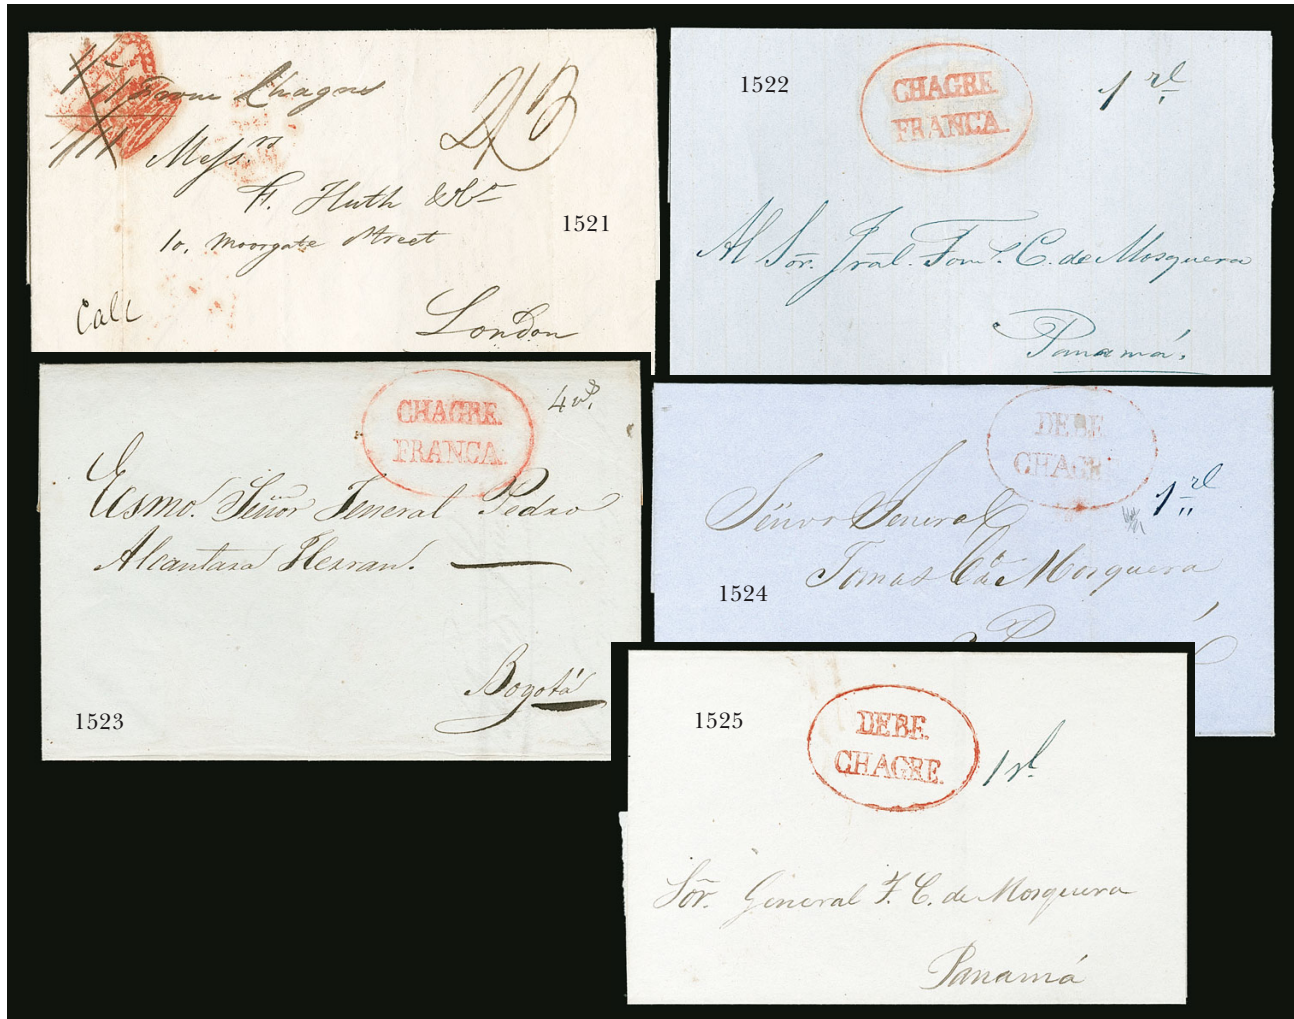 From Chagres
2/3
Mess.rs
F. Huth & Co
10, Moorgate Street
1521
Call
London
1522
CHAGRE
FRANCA.
1 rl
Al Sor. Jral. Tom.s C. de Mosquera
Panamá.
CHAGRE.
FRANCA.
4 rs.
Ecsmo. Señor Jeneral Pedro
Alcantara Herran.
Bogotá
1523
DEBE
CHAGRE
1 rl
Señor Jeneral
Tomas C. de Mosquera
1524
1525
DEBE.
CHAGRE.
1 rl
Sor. General T. C. de Mosquera
Panamá